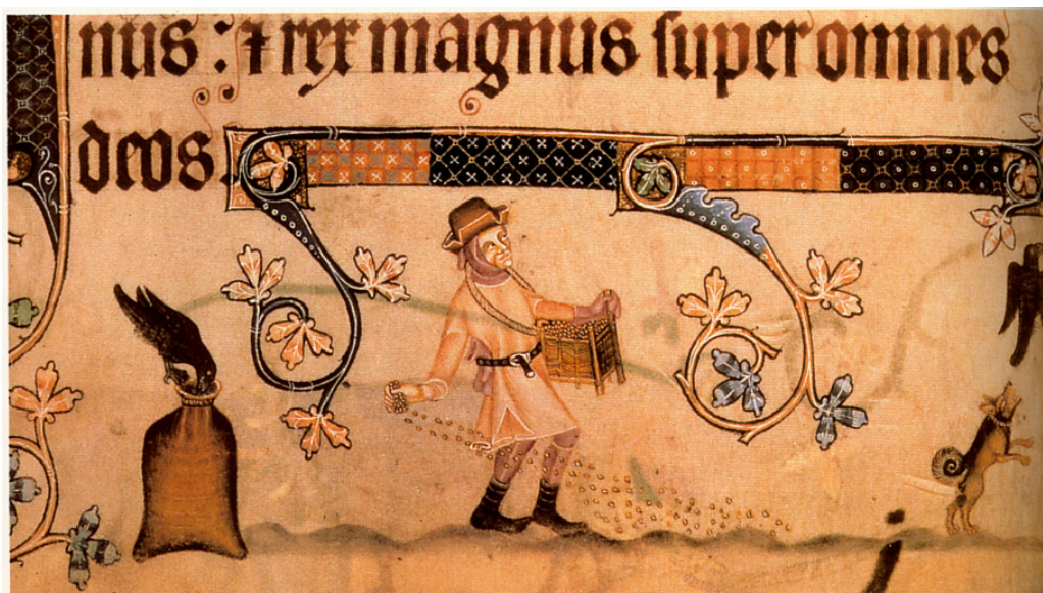 nus : ⁊ rex magnus super omnes
deos.